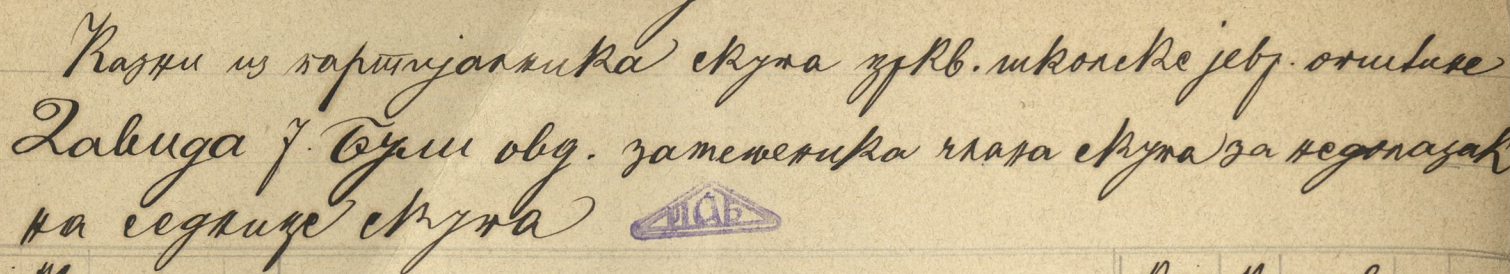 Казни из партијалника скупа црkв. школске јевр. општине
Давида Ј. Були овд. заменика члана скупа за недолазак
на седнице скупа
ИАБ